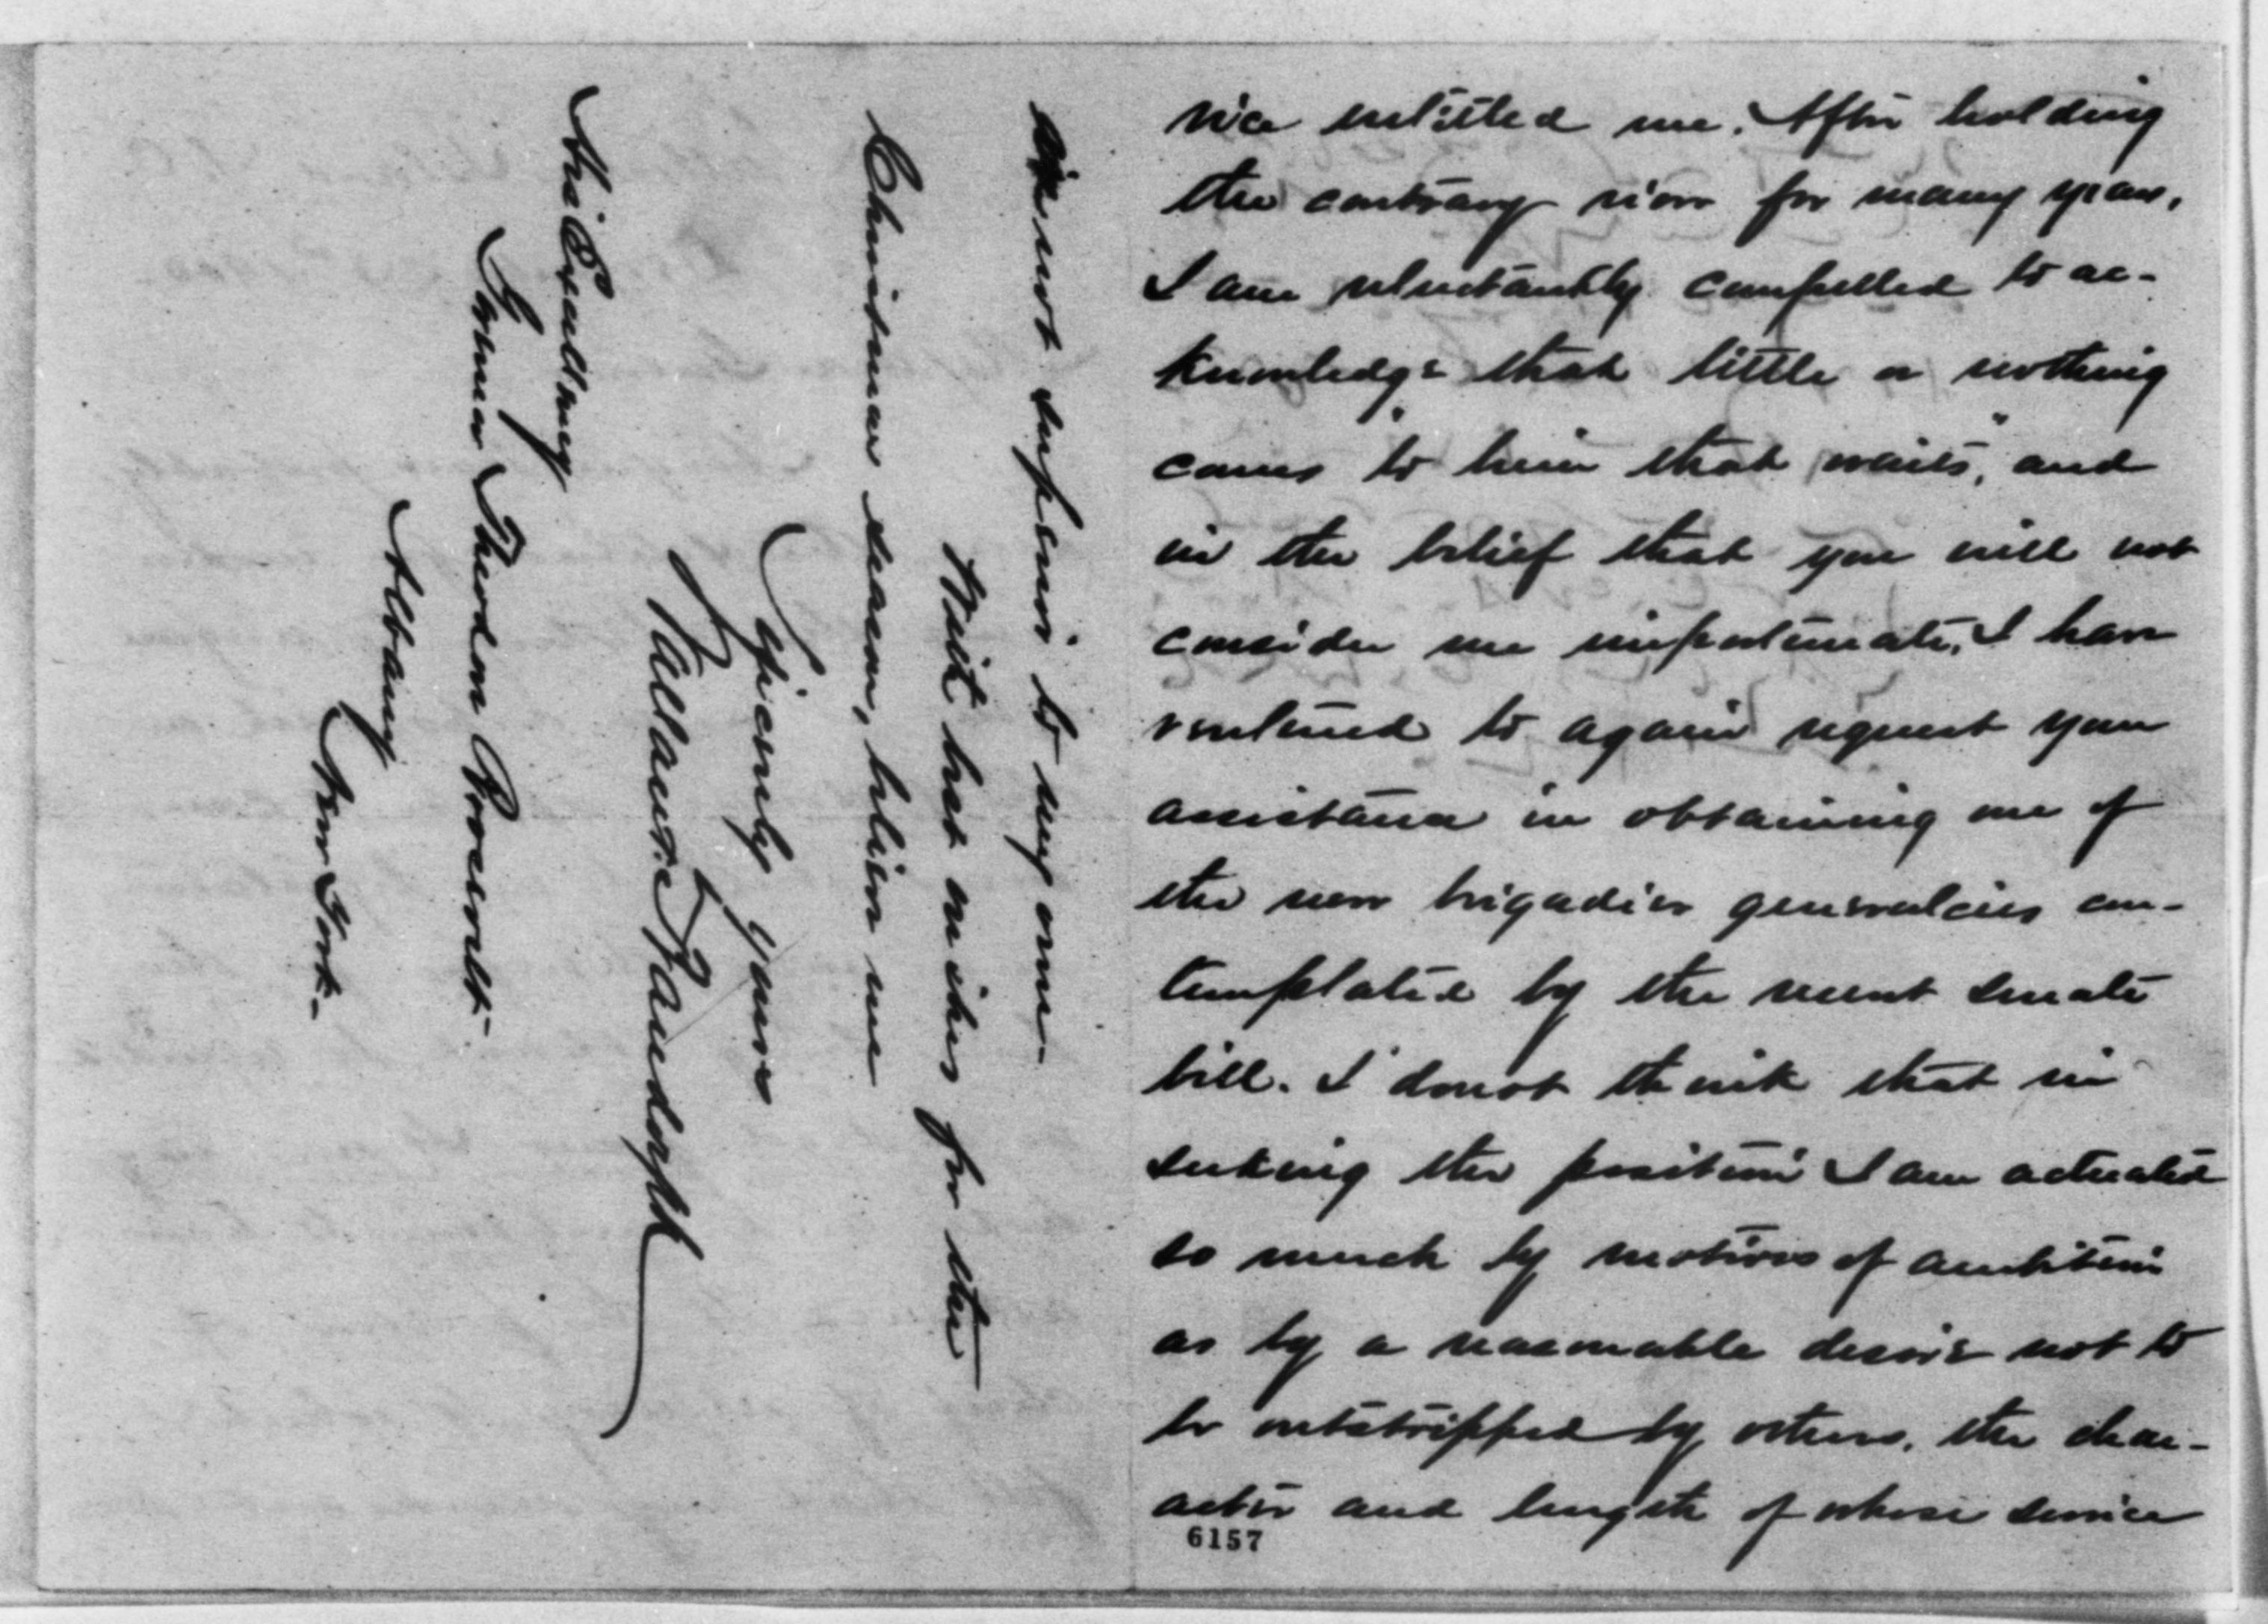 vice entitled me. After holding
the contrary view for many years,
I am reluctantly compelled to ac-
knowledge that little or nothing
comes "to him that waits," and
in the belief that you will not
consider me importunate, I have
ventured to again request your
assistance in obtaining one of
the new brigadier generalcies con-
templated by the recent senate
bill. I do not think that in
seeking the position I am actuated
so much by motives of ambition
as by a reasonable desire not to
be outstripped by others, the char-
acter and length of whose service
6157
is not superior to my own-
With best wishes for the
Christmas season, believe me
Sincerely yours
Wallace F. Randolph
His Excellency
Governor Theodore Roosevelt-
Albany
New York-